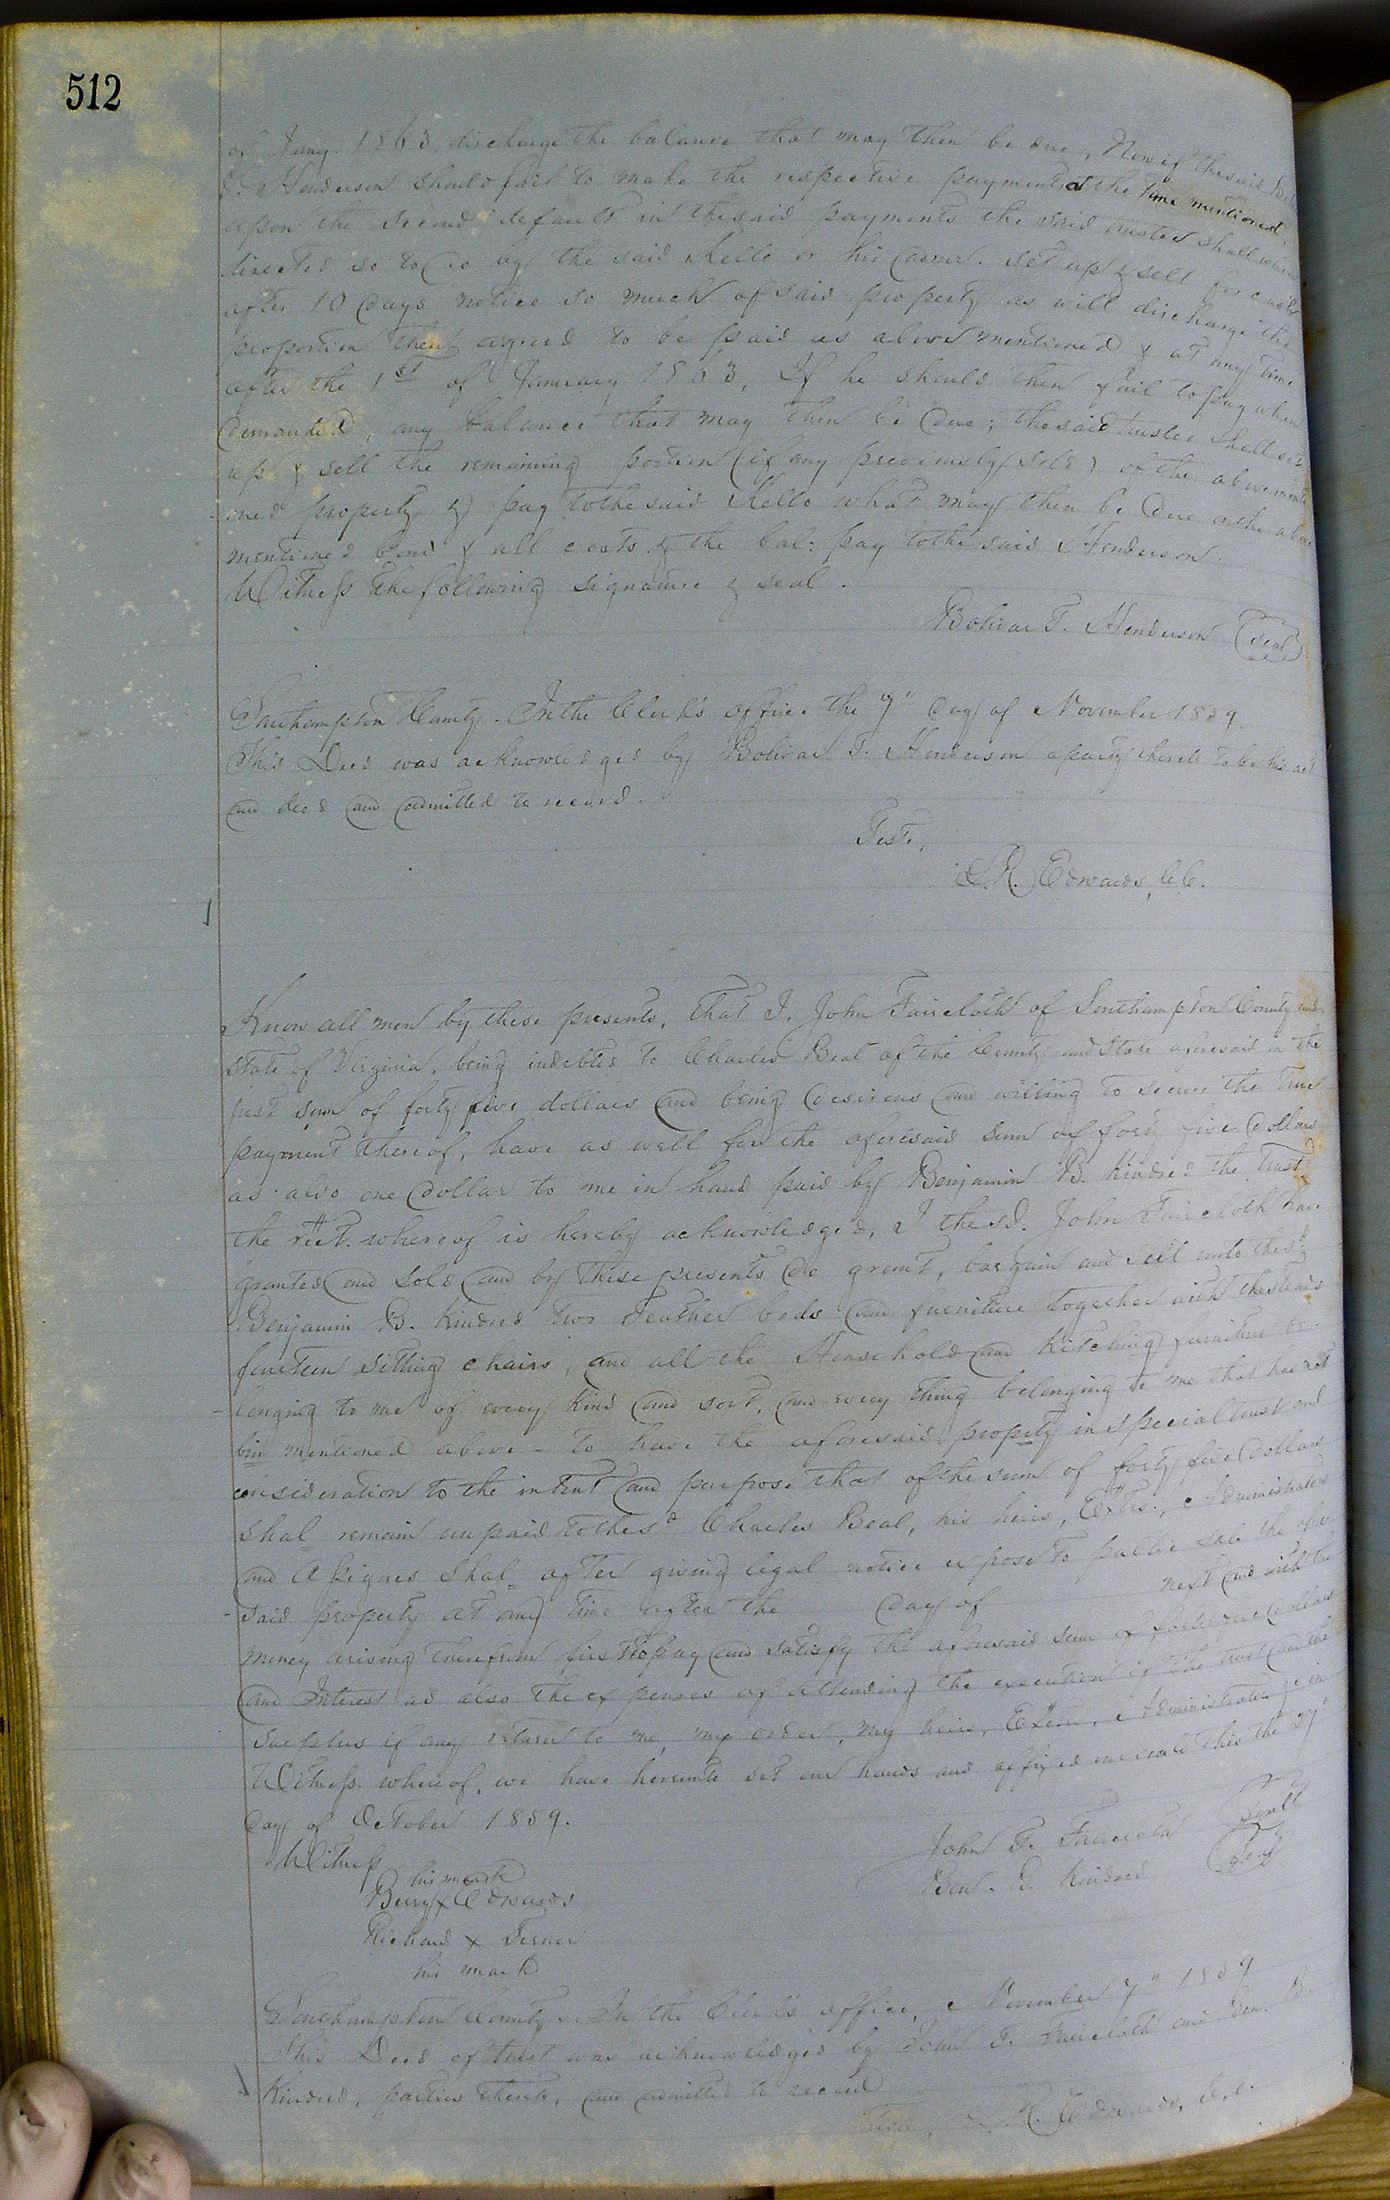 512
of Jany. 1863, discharge the balance that may then be due, Now if the said
T. Henderson should fail to make the respective payments at the time mentioned,
upon the second default in the said payments the said trustee shall when
directed so to do by the said Kello or his admr. set up & sell for cash
after 10 days notice so much of said property as will discharge the
proportion then agreed to be paid as above mentioned & at any time
after the 1st of January 1863, If he should then fail to pay when
demanded, any balance that may then be due; the said trustee shall set
up & sell the remaining portion (if any previously sold) of the above menti
oned property & pay to the said Kello what may then be due on the above
mentioned bond & all costs & the bal: pay to the said Henderson.
Witness the following signature & seal.
Bolivar T. Henderson (seal)
Southampton County. In the Clerk's office the 7" day of November 1859.
This Deed was acknowledged by Bolivar T. Henderson a party thereto to be his act
and deed and admitted to record.
Teste,
L. R. Edwards, C.C.
Know all men by these presents, that I, John Faircloth of Southampton County and
State of Virginia, being indebted to Charles Beal of the County and State aforesaid in the
just sum of forty five dollars and being desirous and willing to secure the true
payment thereof, have as well for the aforesaid sum of forty five dollars
as also one dollar to me in hand paid by Benjamin B. Kindred the trust
the rect. whereof is hereby acknowledged, I the sd. John Faircloth have
granted and sold and by these presents do grant, bargain and sell unto the sd
Benjamin B. Kindred two Feather beds and furniture together with the steads
fourteen sitting chairs, and all the Household and Kitching furniture be-
longing to me of every kind and sort, and every thing belonging to me that has not
bin mentioned above - to have the aforesaid propety in special trust and
consideration to the intent and purpose that of the sum of forty five Dollars
Shal remain unpaid to the sd Charles Beal, his heirs, Extrs., Administrators
and Assignes Shal after giving legal notice expose to public sale the afore
said property at any time after the day of next and with the
money arising therefrom first to pay and satisfy the aforesaid sum of forty five dollars
and Interest as also the expenses of attending the execution of the trust and the
surplus if any return to me, my order, my heirs, Extrs, Administrators &c in
Witness whereof, we have hereunto set our hands and affixed our seals this the 29"
day of October 1859.
John T. Faircloth (seal)
Ben. B. Kindred (seal)
Witness
his mark
Berry x Edwards
Richard x Turner
his mark
Southampton County. In the Clerk's office, November 7" 1859
This Deed of trust was acknowledged by John T. Faircloth and Ben. B.
Kindred, parties thereto, and admitted to record
Teste, L. R. Edwards, C.C.